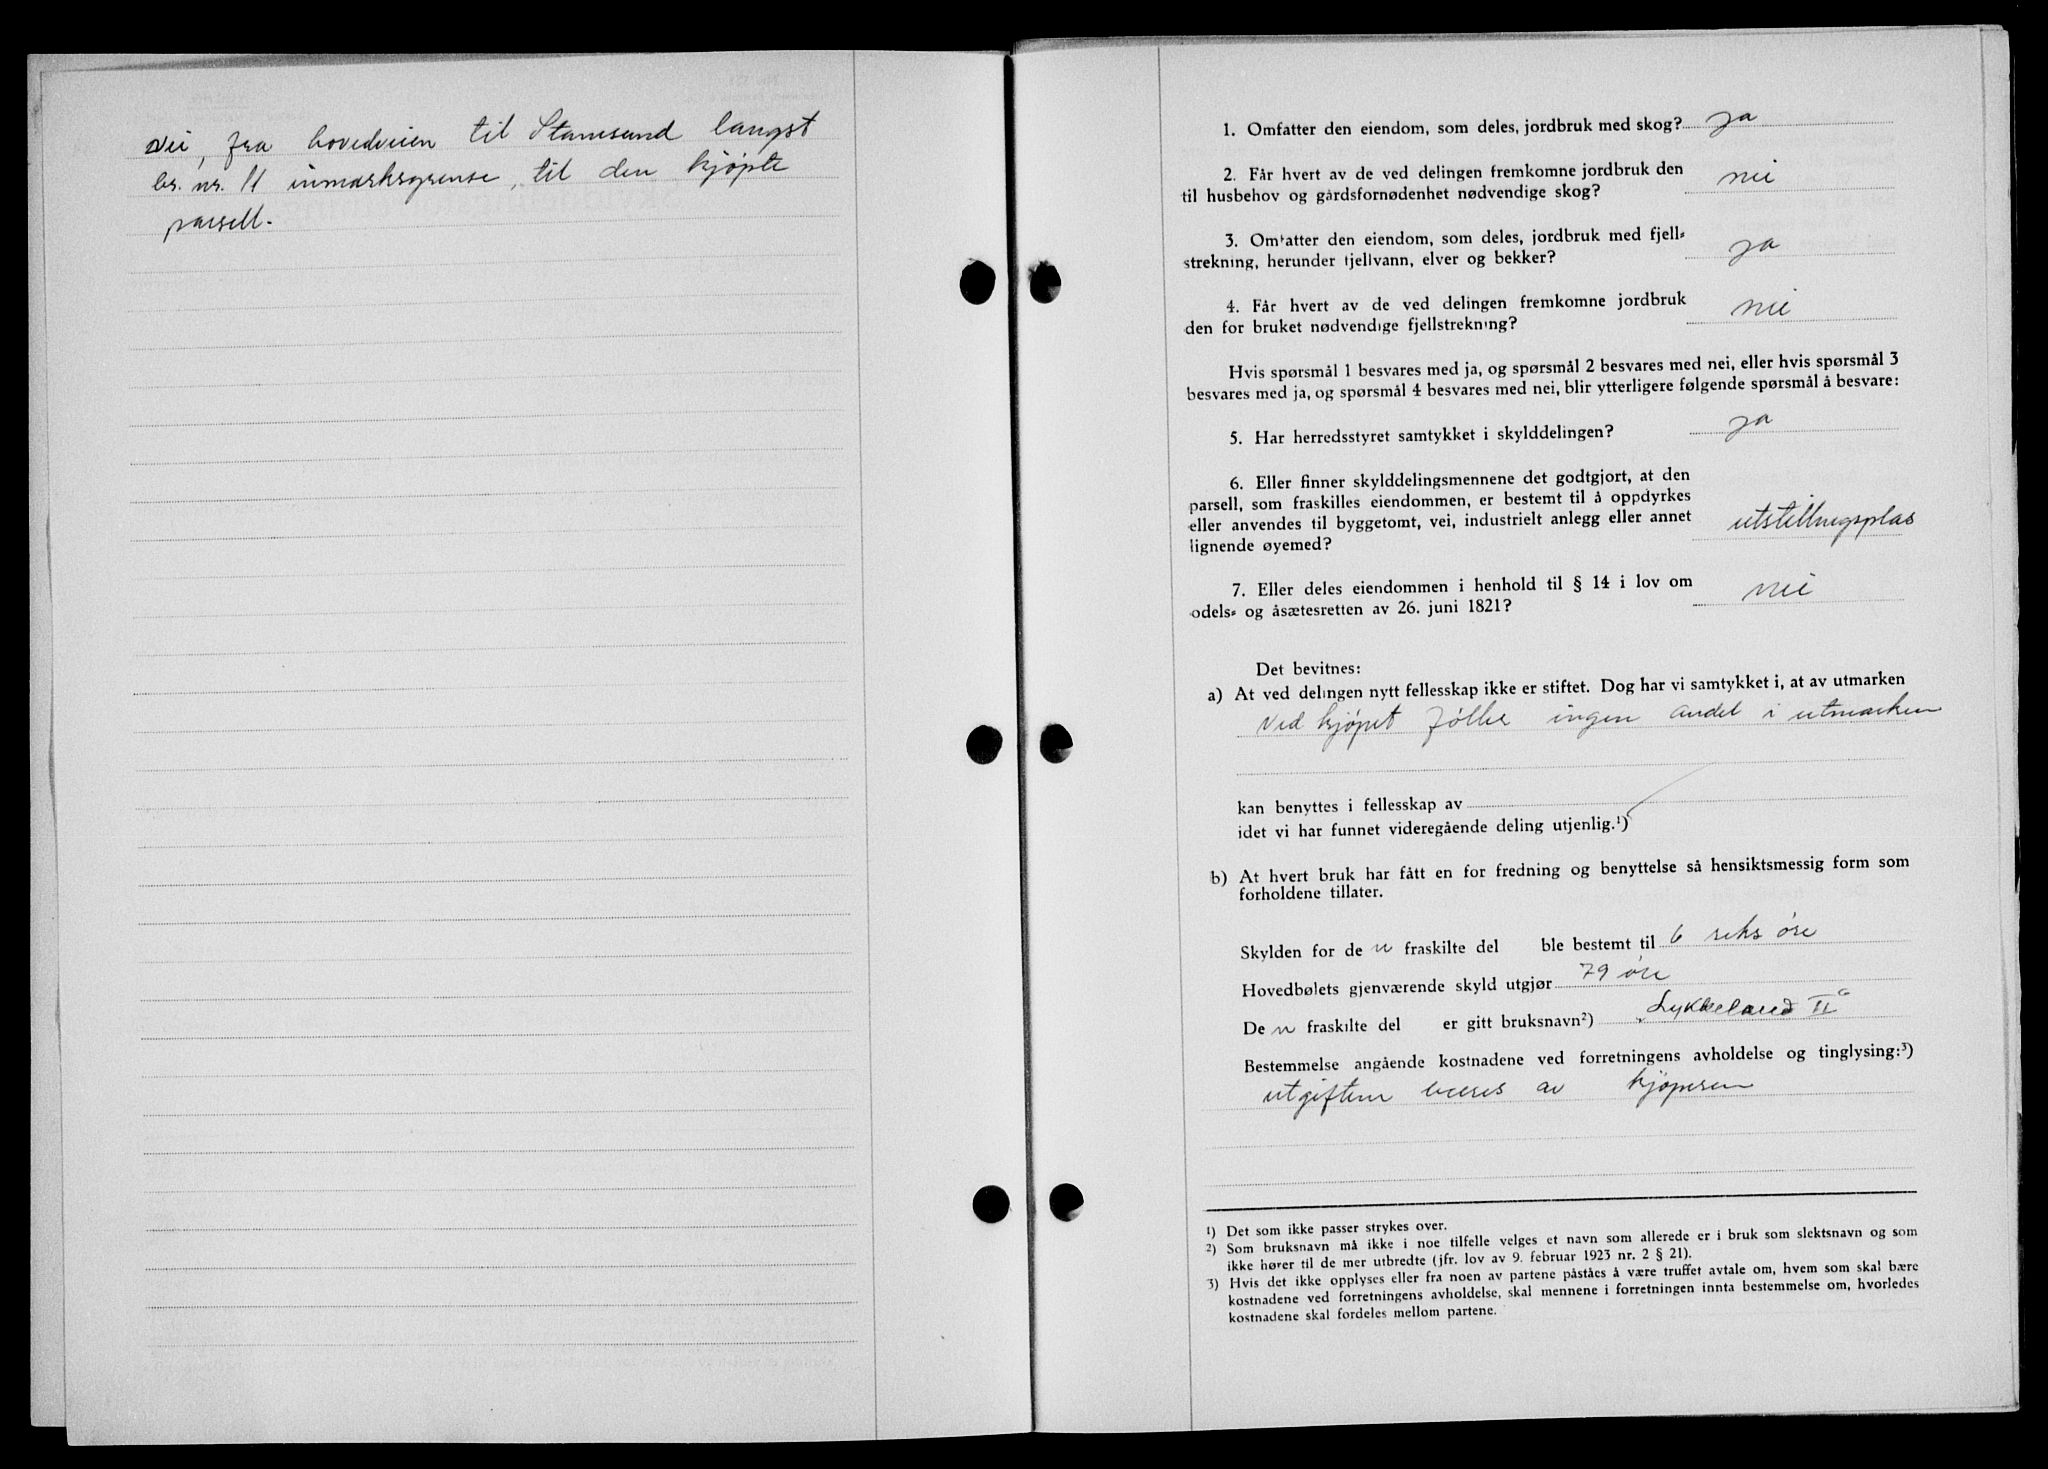 vei, fra hovedveien til Stamsund langst
br. nr. 11 inmarksgrense, til den kjøpte
parsell.
1. Omfatter den eiendom, som deles, jordbruk med skog? ja
2. Får hvert av de ved delingen fremkomne jordbruk den
til husbehov og gårdsfornødenhet nødvendige skog? nei
3. Omfatter den eiendom, som deles, jordbruk med fjell-
strekning, herunder fjellvann, elver og bekker? ja
4. Får hvert av de ved delingen fremkomne jordbruk
den for bruket nødvendige fjellstrekning? nei
Hvis spørsmål 1 besvares med ja, og spørsmål 2 besvares med nei, eller hvis spørsmål 3
besvares med ja, og spørsmål 4 besvares med nei, blir ytterligere følgende spørsmål å besvare:
5. Har herredsstyret samtykket i skylddelingen? ja
6. Eller finner skylddelingsmennene det godtgjort, at den
parsell, som fraskilles eiendommen, er bestemt til å oppdyrkes
eller anvendes til byggetomt, vei, industrielt anlegg eller annet utstillingsplas
lignende øyemed?
7. Eller deles eiendommen i henhold til § 14 i lov om
odels- og åsætesretten av 26. juni 1821? nei
Det bevitnes:
a) At ved delingen nytt fellesskap ikke er stiftet. Dog har vi samtykket i, at av utmarken
Ved kjøpet følke ingen andel i utmarken
kan benyttes i fellesskap av
idet vi har funnet videregående deling utjenlig.¹)
b) At hvert bruk har fått en for fredning og benyttelse så hensiktsmessig form som
forholdene tillater.
Skylden for de n fraskilte del ble bestemt til 6 seks øre
Hovedbølets gjenværende skyld utgjør 79 øre
De n fraskilte del er gitt bruksnavn²) "Lykkeland II"
Bestemmelse angående kostnadene ved forretningens avholdelse og tinglysing:³)
utgiften bæres av kjøperen
¹) Det som ikke passer strykes over.
²) Som bruksnavn må ikke i noe tilfelle velges et navn som allerede er i bruk som slektsnavn og som
ikke hører til de mer utbredte (jfr. lov av 9. februar 1923 nr. 2 § 21).
³) Hvis det ikke opplyses eller fra noen av partene påståes å være truffet avtale om, hvem som skal bære
kostnadene ved forretningens avholdelse, skal mennene i forretningen innta bestemmelse om, hvorledes
kostnadene skal fordeles mellom partene.